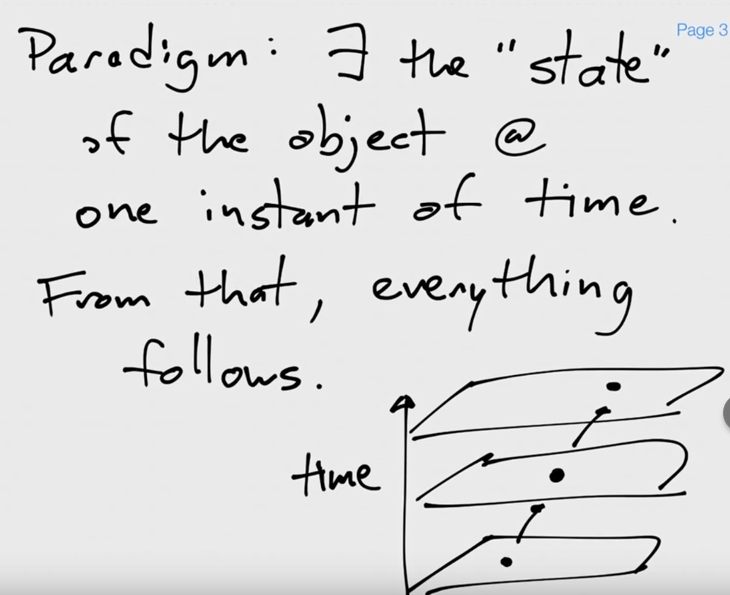 Page 3
Paradigm: ∃ the "state"
of the object @
one instant of time.
From that, everything
follows.
time